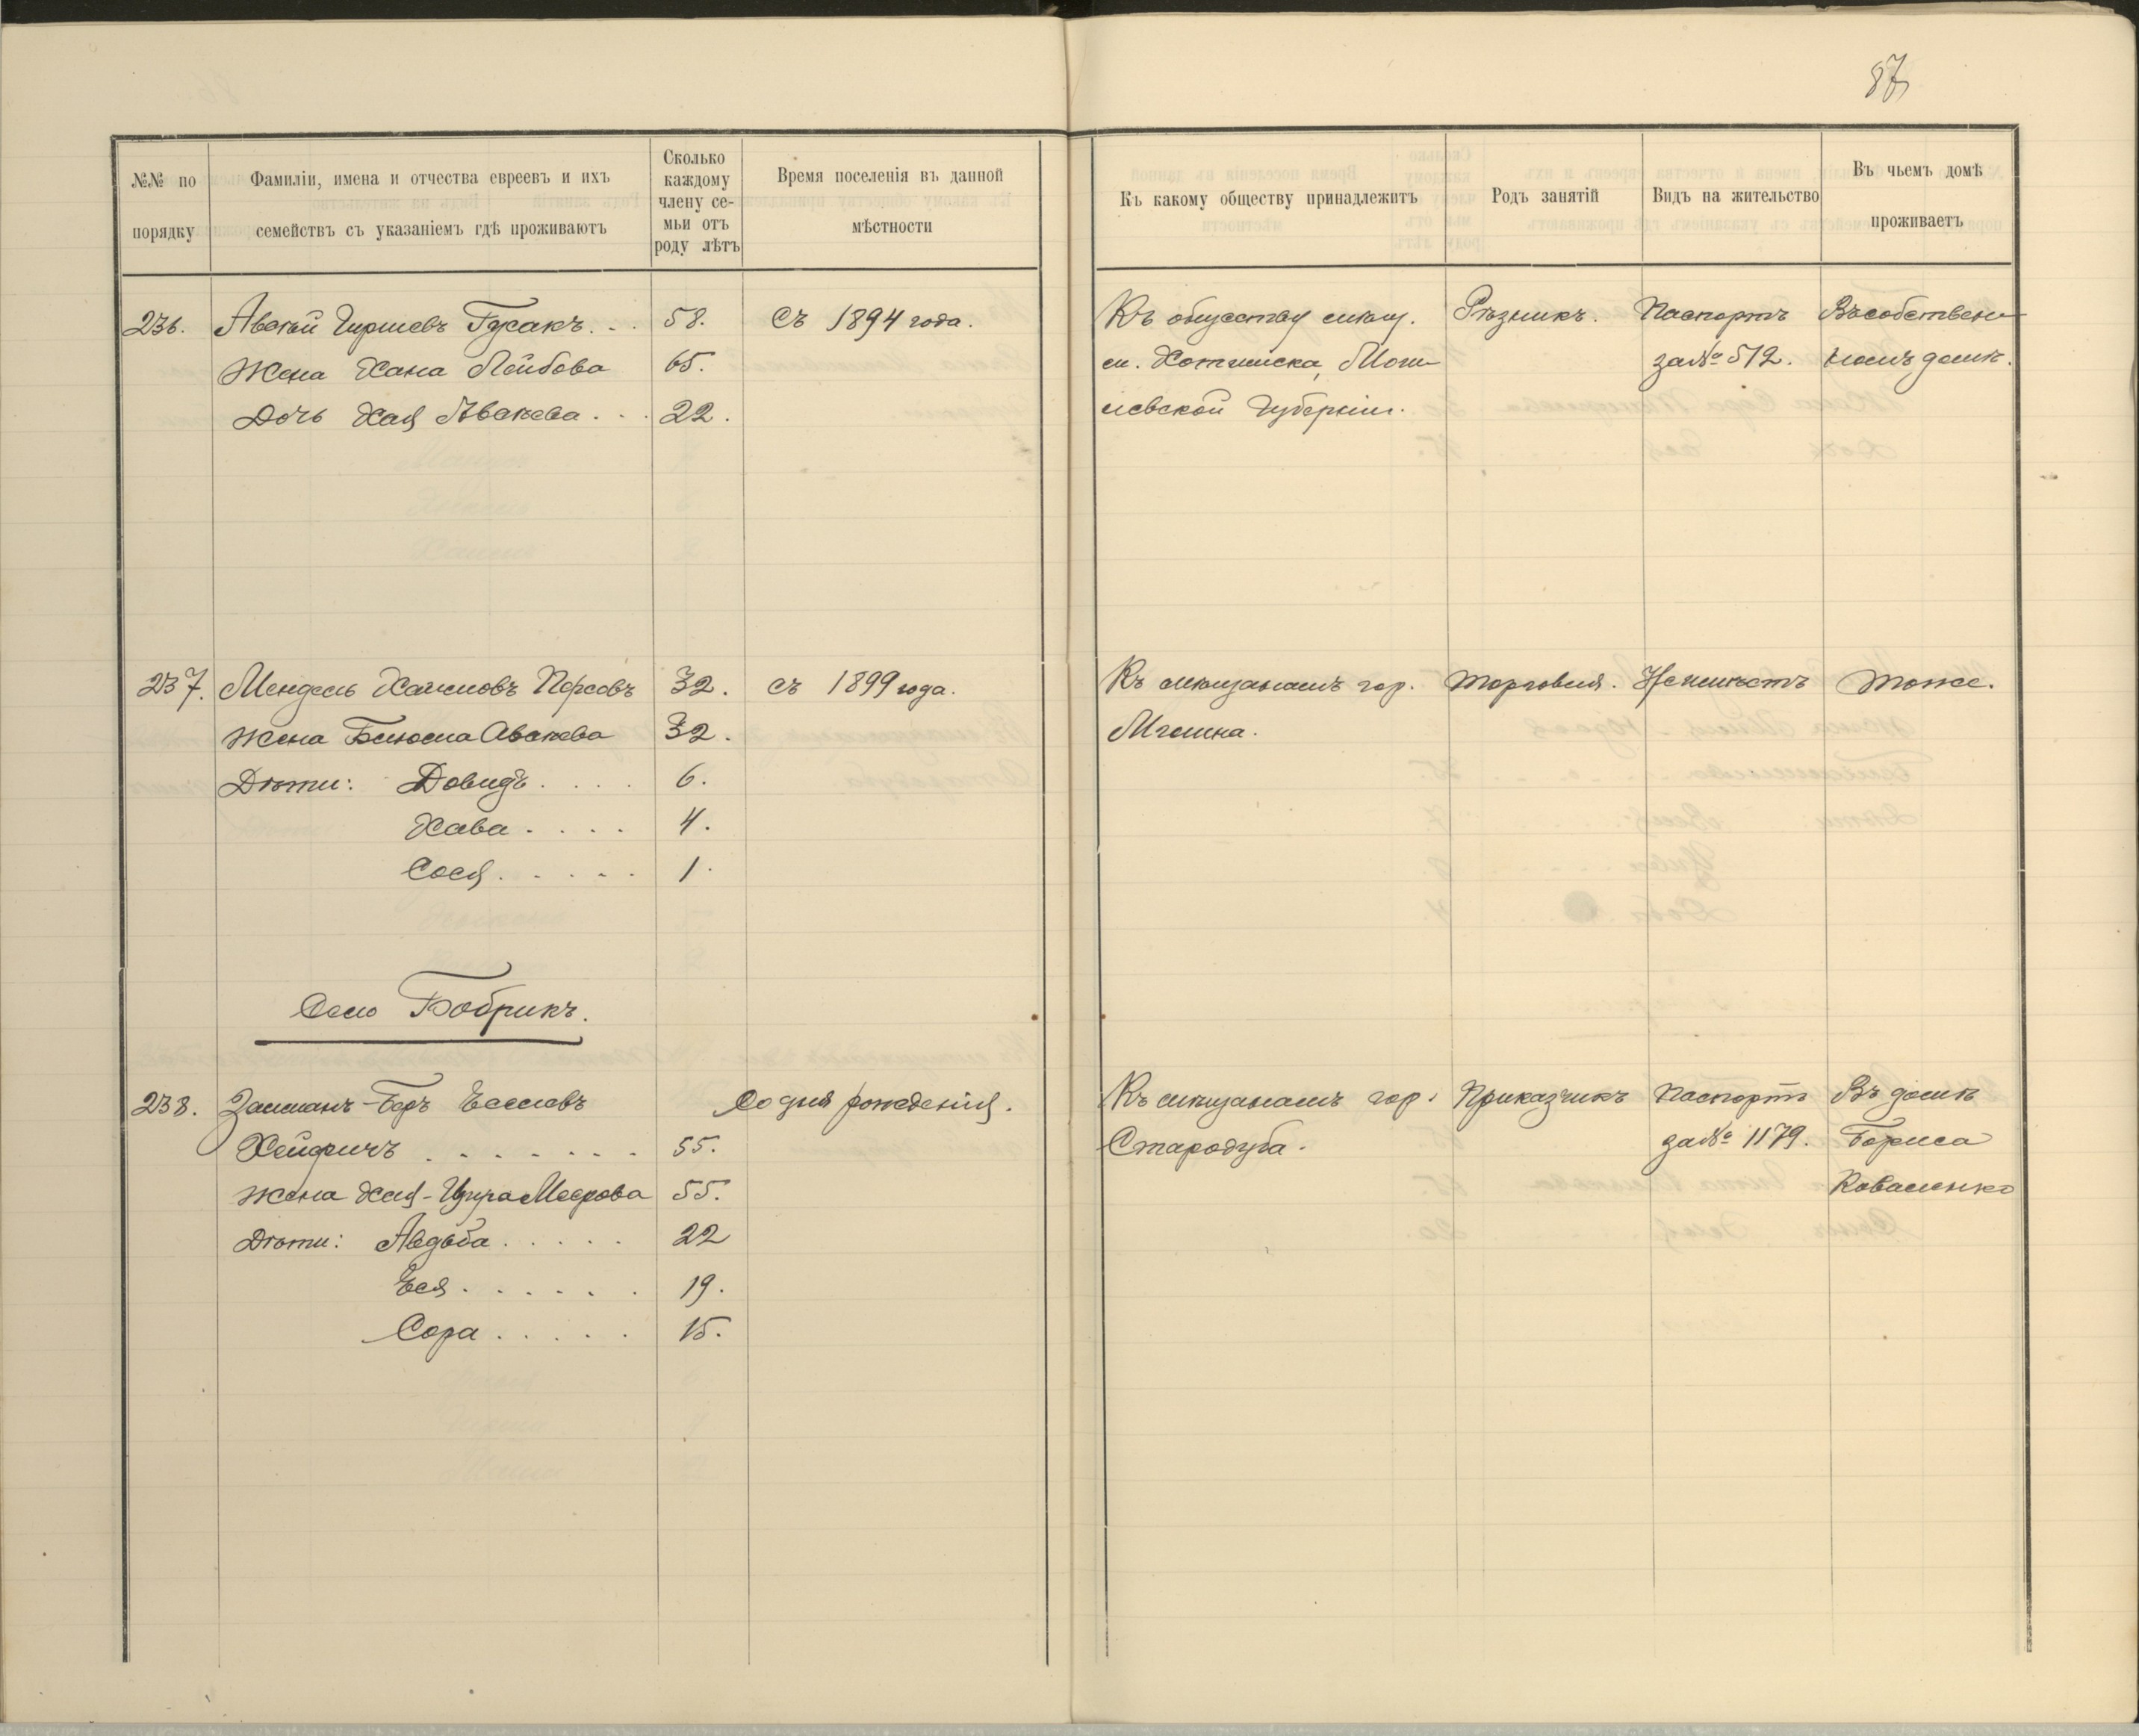 87
№№ по
порядку
Фамиліи, имена и отчества евреевъ и ихъ
семействъ съ указаніемъ гдѣ проживаютъ
Сколько
каждому
члену се-
мьи отъ
роду лѣтъ
Время поселенія въ данной
мѣстности
Къ какому обществу принадлежитъ
Родъ занятій
Видъ на жительство
Въ чьемъ домѣ
проживаетъ
236. Авсѣй Гиршевъ Гусакъ . . 58. Съ 1894 года. Къ обществу мѣщ. Рѣзникъ. Паспортъ Въ собствен-
Жена Хана Лейбова 65. м. Хотимска, Моги- за № 512. номъ домѣ.
Дочь Хая Авсѣева . . 22. левской Губерніи.
237. Мендель Хаимовъ Персовъ 32. съ 1899 года. Къ мѣщанамъ гор. Торговля. Неимѣетъ Тоже.
Жена Блюма Авсѣева 32. Мглина.
Дѣти: Довидъ . . . . 6.
Хава . . . . 4.
Сося . . . . . 1.
Село Бобрикъ.
238. Залманъ-Беръ Еселевъ Со дня рожденія. Къ мѣщанамъ гор. Приказчикъ Паспортъ Въ домѣ
Хейфичъ . . . . . . . 55. Стародуба. за № 1179. Бориса
Жена Хая- Меерова 55. Коваленко
Дѣти: . . . . . 22
Еся . . . . . . 19.
Сора . . . . . 15.